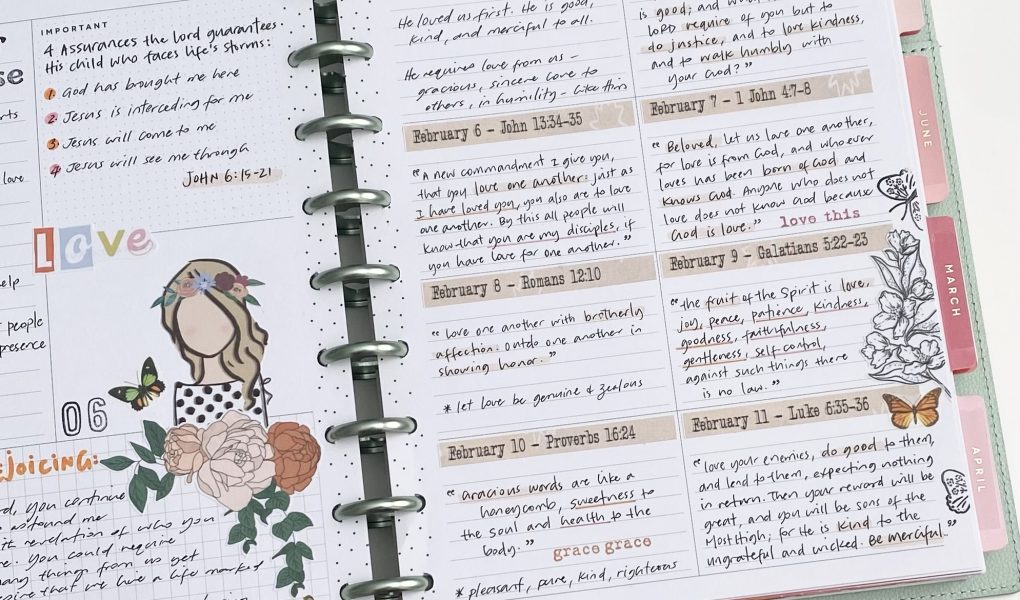 se
rts
love
IMPORTANT
4 Assurances the Lord guarantees
His child who faces life's storms:
1 God has brought me here
2 Jesus is interceding for me
3 Jesus will come to me
4 Jesus will see me through
JOHN 6:15-21
Love
elp
people
presence
06
EJOICING:
d, you continue
astound me
revelation of who you
. You could require
many things from us yet
that we live a life marked
He loved us first. He is good,
kind, and merciful to all.
He requires love from us -
gracious, sincere love to
others, in humility - like Him
February 6 - John 13:34-35
"A new commandment I give you,
that you love one another: just as
I have loved you, you also are to love
one another. By this all people will
know that you are my disciples, if
you have love for one another."
February 8 - Romans 12:10
"love one another with brotherly
affection. Outdo one another in
showing honor."
* let love be genuine & zealous
February 10 - Proverbs 16:24
"Gracious words are like a
honeycomb, sweetness to
the soul and health to the
body."
grace grace
* pleasant, pure, kind, righteous
is good; and
LORD require of you but to
do justice, and to love kindness,
and to walk humbly with
your God?"
February 7 - 1 John 4:7-8
"Beloved, let us love one another,
for love is from God, and whoever
loves has been born of God and
knows God. Anyone who does not
love does not know God because
God is love."
love this
February 9 - Galatians 5:22-23
"the fruit of the Spirit is love,
joy, peace, patience, kindness,
goodness, faithfulness,
gentleness, self control,
against such things there
is no law."
February 11 - Luke 6:35-36
"love your enemies, do good to them,
and lend to them, expecting nothing
in return. Then your reward will be
great, and you will be sons of the
Most High; for He is kind to the
ungrateful and wicked. Be merciful."
JUNE
MARCH
APRIL